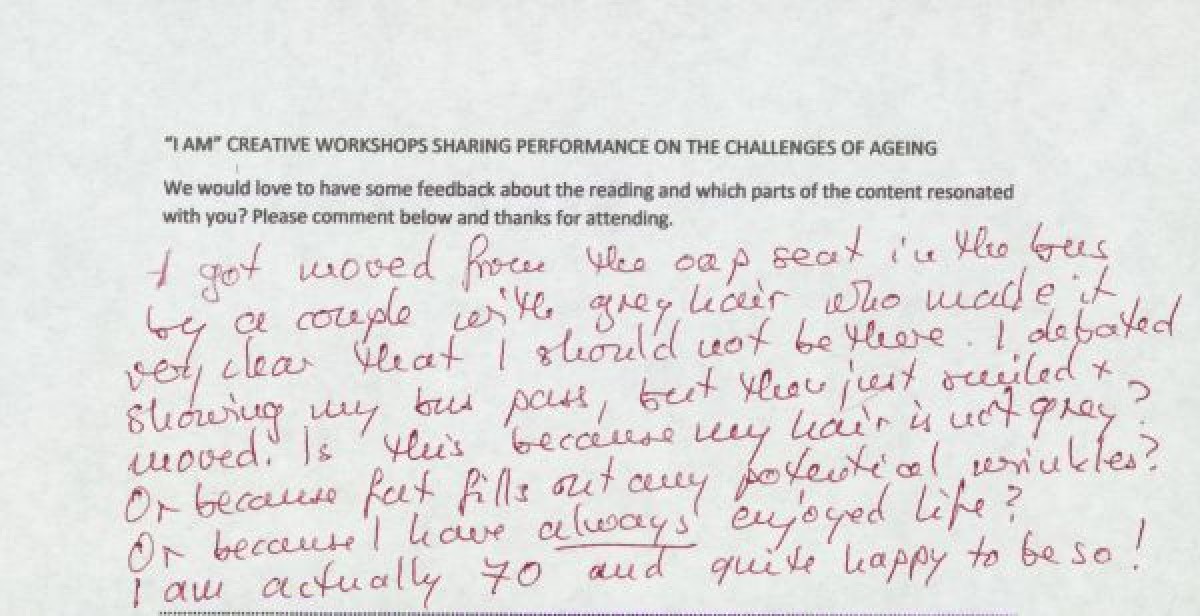 "I AM" CREATIVE WORKSHOPS SHARING PERFORMANCE ON THE CHALLENGES OF AGEING
We would love to have some feedback about the reading and which parts of the content resonated
with you? Please comment below and thanks for attending.
I got moved from the oap seat in the bus
by a couple with grey hair who made it
very clear that I should not be there. I debated
showing my bus pass, but then just smiled +
moved. Is this because my hair is not grey?
Or because fat fills out any potential wrinkles?
Or because I have always enjoyed life?
I am actually 70 and quite happy to be so!